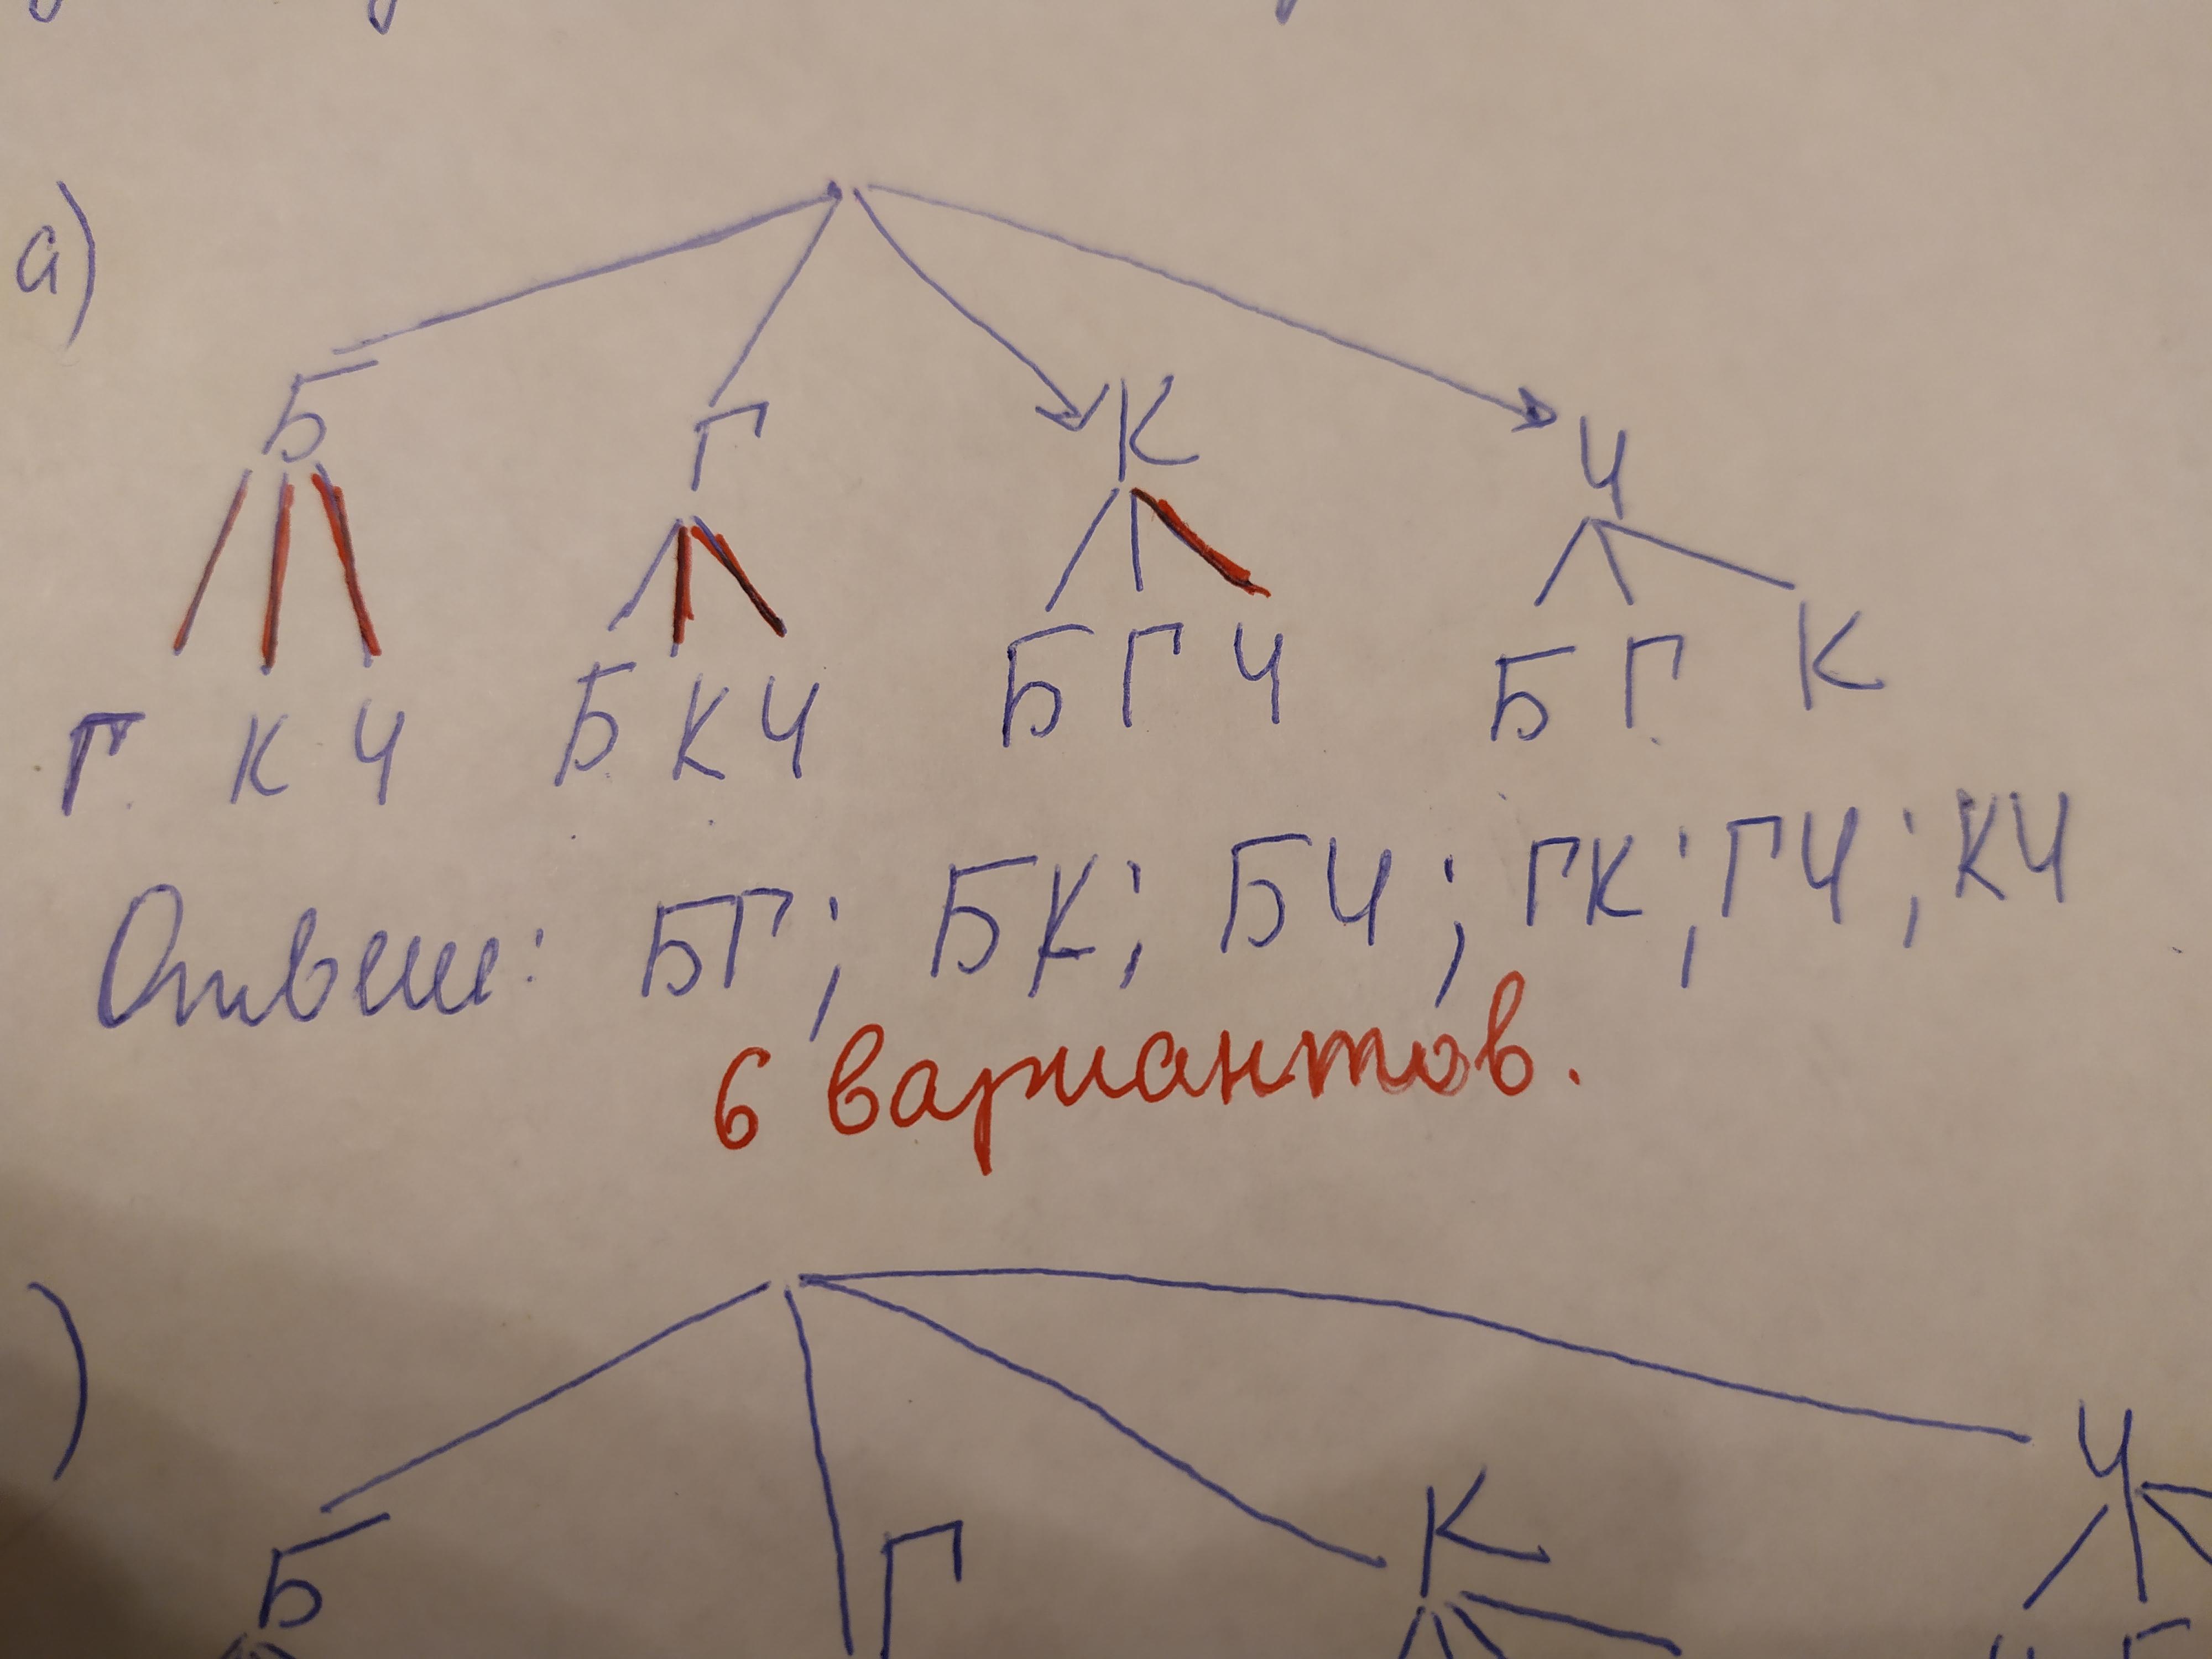 а)
Б Г К Ч
Г К Ч Б К Ч Б Г Ч Б Г К
Ответ: БГ; БК; БЧ; ГК; ГЧ; КЧ
6 вариантов.
)
Б Г К Ч